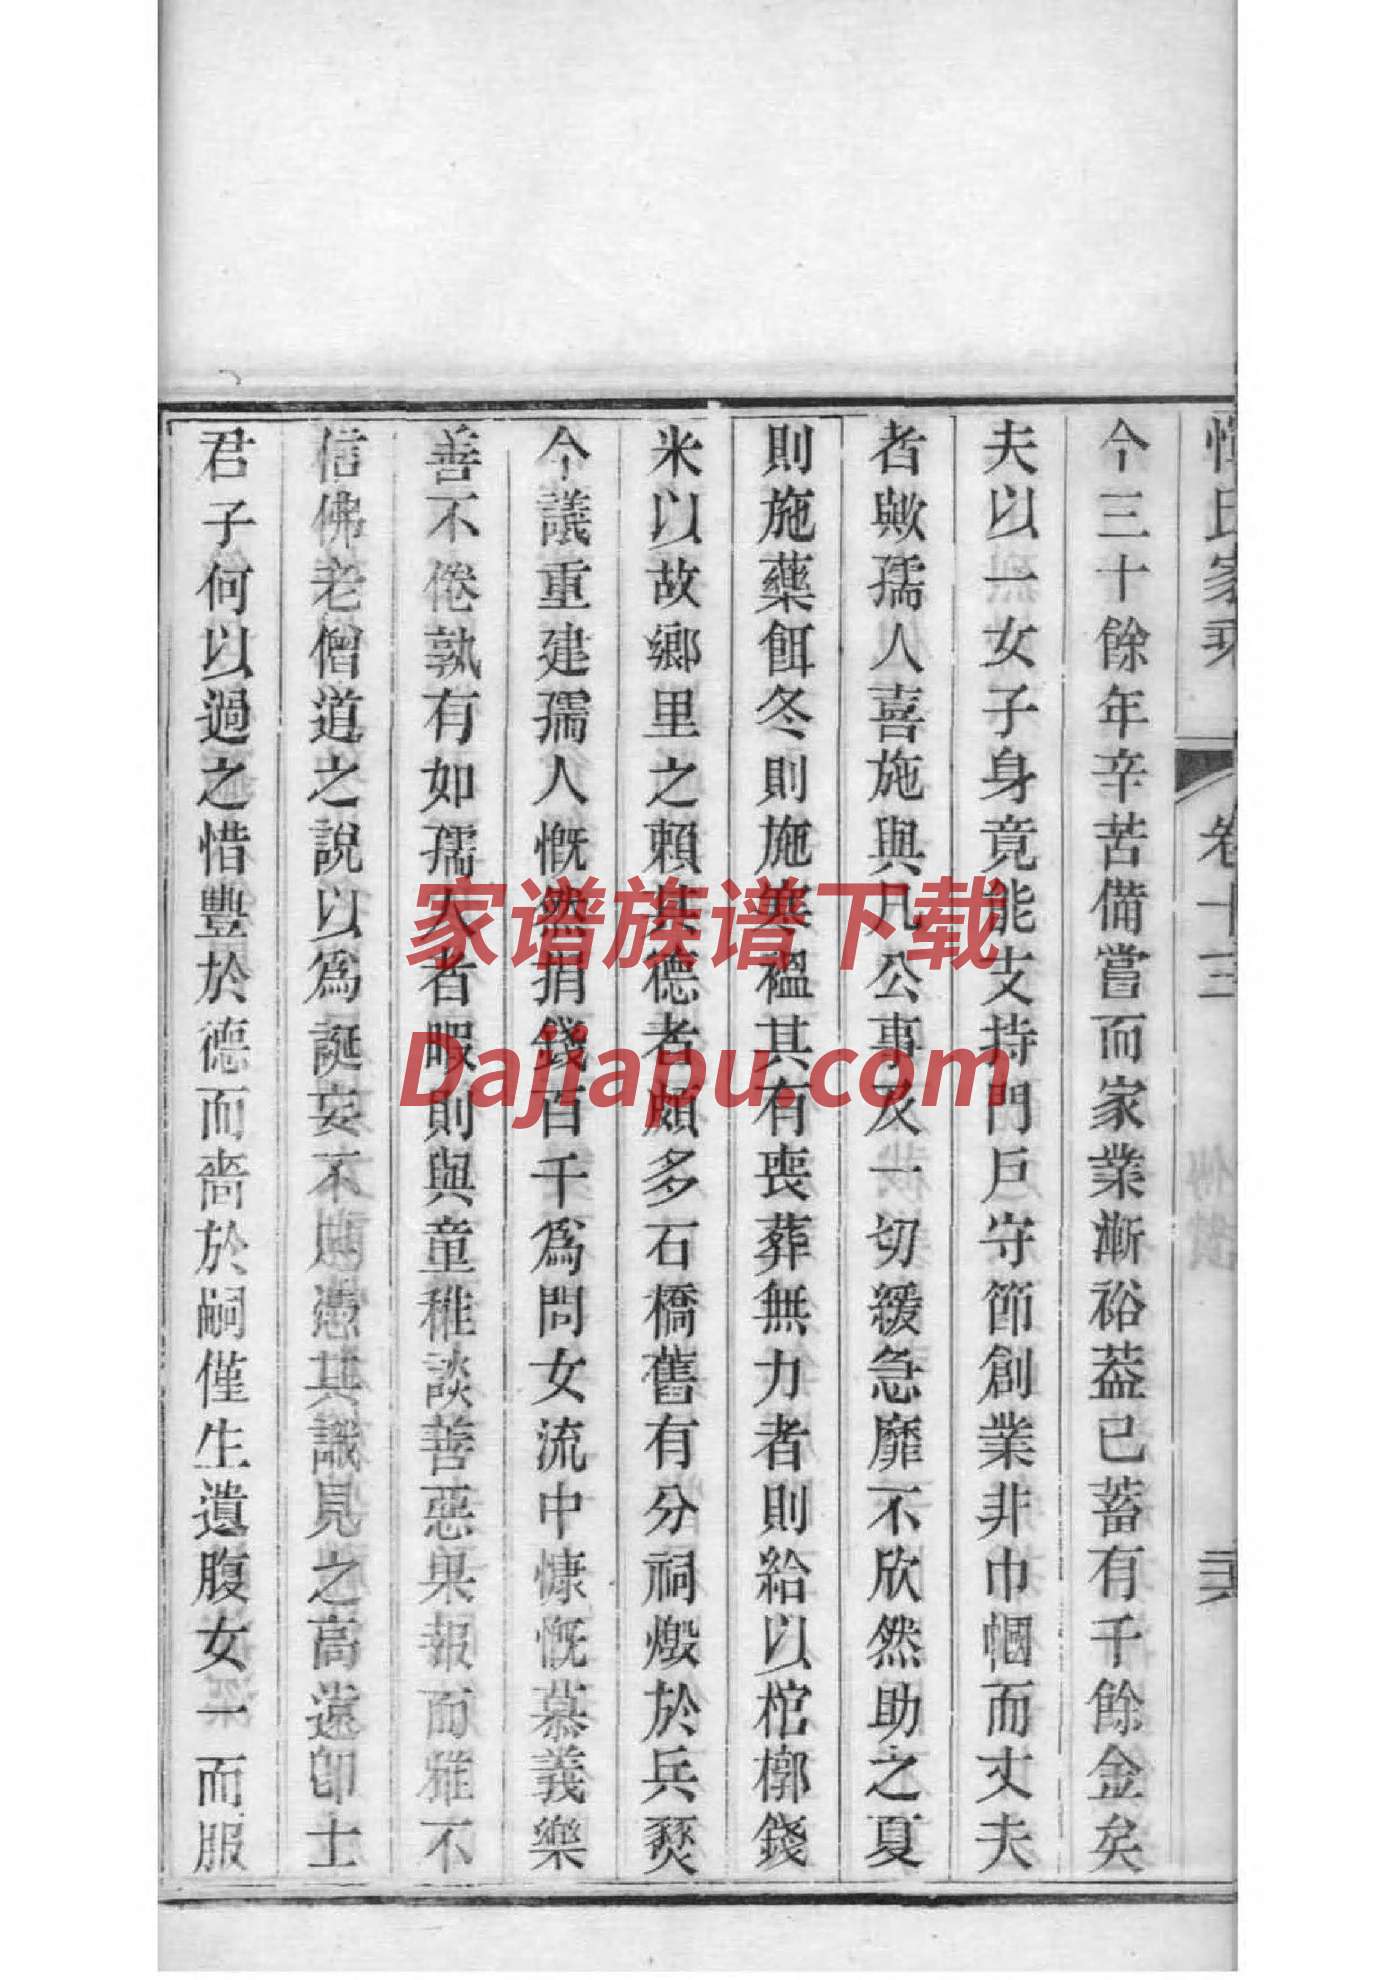 惲氏家乘 卷十三
今三十餘年辛苦備嘗而家業漸裕葢已蓄有千餘金矣
夫以一女子身竟能支持門戶守節創業非巾幗而丈夫
者歟孺人喜施與凡公事及一切緩急靡不欣然助之夏
則施藥餌冬則施寒縕其有喪葬無力者則給以棺槨錢
米以故鄉里之賴其德者頗多石橋舊有分祠燬於兵燹
今議重建孺人慨然捐錢百千爲問女流中慷慨慕義樂
善不倦孰有如孺人者暇則與童稚談善惡果報而雅不
信佛老僧道之說以爲誕妄不應憑其識見之高遠卽士
君子何以過之惜豐於德而嗇於嗣僅生遺腹女一而服
家谱族谱下载
Dajiapu.com